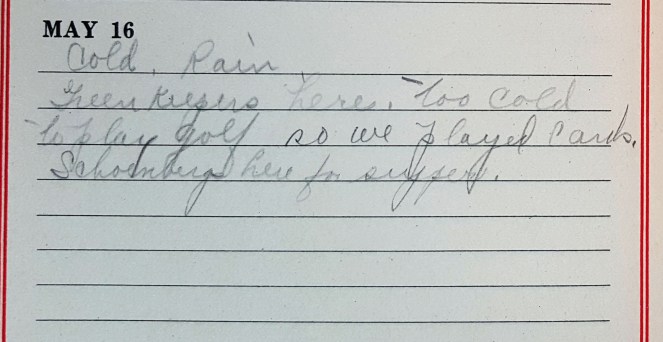 MAY 16
Cold, Rain
Greenkeepers here. Too cold
to play golf so we played cards.
Schoenbergs here for supper.